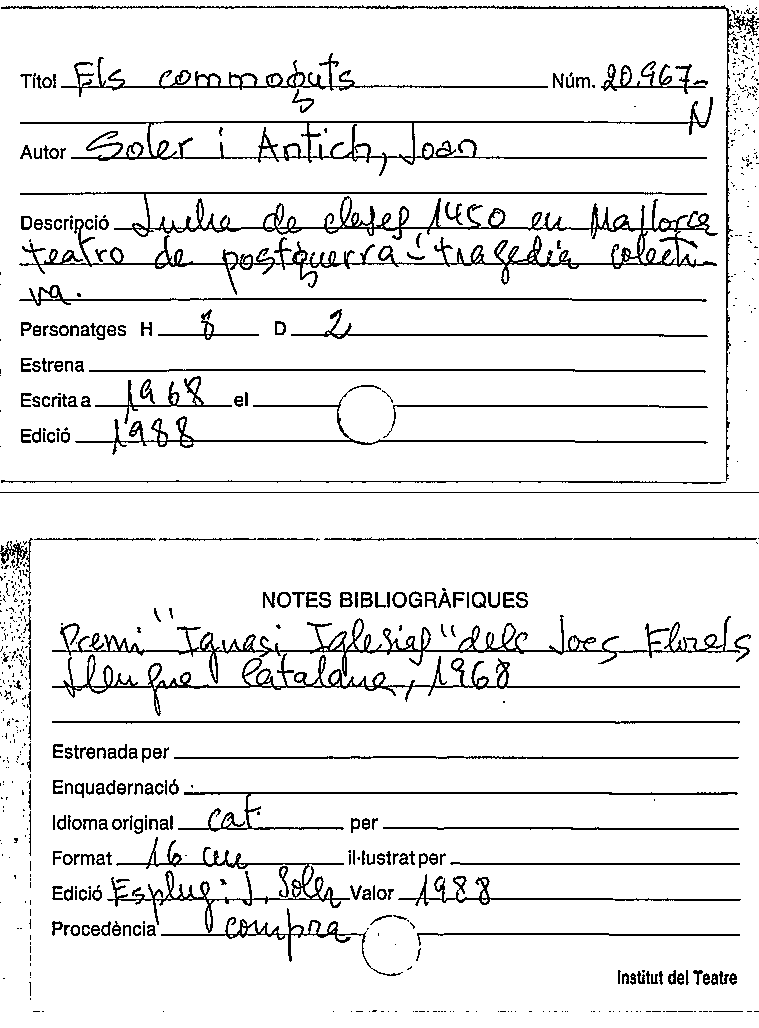 Títol Els commoguts Núm. 20.967-
N
Autor Soler i Antich, Joan
Descripció Lucha de clases, 1450 en Mallorca
teatro de postguerra - tragedia colecti-
va.
Personatges H 8 D 2
Estrena
Escrita a 1968 el
Edició 1988
NOTES BIBLIOGRÀFIQUES
Premi "Ignasi Iglesias" dels Jocs Florals
Llengua Catalana, 1968
Estrenada per
Enquadernació
Idioma original cat. per
Format 16 cm il·lustrat per
Edició Esplug: J. Soler Valor 1988
Procedència compra
Institut del Teatre